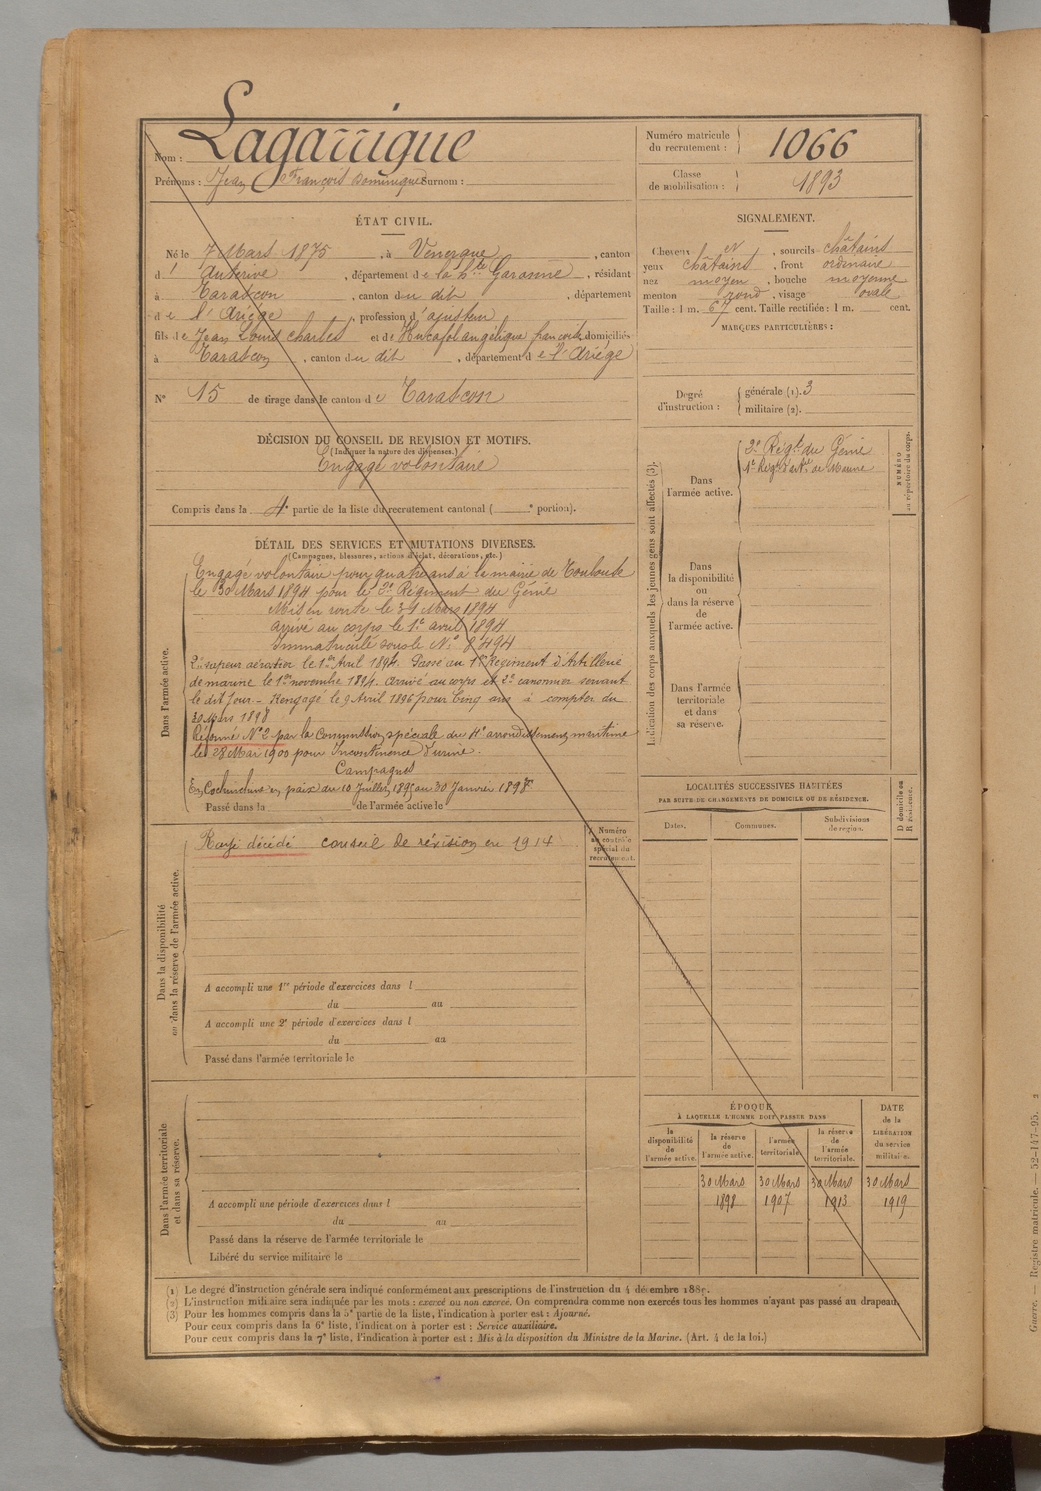 Nom : Lagarrigue
Prénoms : Jean François Dominique Surnom :
Numéro matricule du recrutement : 1066
Classe de mobilisation : 1893
ÉTAT CIVIL.
Né le 7 Mars 1875, à Venerque, canton
d' Auterive, département de la Hte Garonne, résidant
à Tarascon, canton du dit, département
de l'Ariège, profession d'ajusteur
fils de Jean Louis Charles et de angélique françoise domiciliés
à Tarascon, canton du dit, département de l'Ariège
N° 15 de tirage dans le canton de Tarascon
SIGNALEMENT.
Cheveux et, sourcils châtains
yeux châtains, front ordinaire
nez moyen, bouche moyenne
menton rond, visage ovale
Taille : 1 m. 67 cent. Taille rectifiée : 1 m. cent.
MARQUES PARTICULIÈRES :
Degré d'instruction : générale (1). 3
militaire (2).
DÉCISION DU CONSEIL DE REVISION ET MOTIFS.
(Indiquer la nature des dispenses.)
Engagé volontaire
Compris dans la 4e partie de la liste du recrutement cantonal ( e portion).
DÉTAIL DES SERVICES ET MUTATIONS DIVERSES.
(Campagnes, blessures, actions d'éclat, décorations, etc.)
Dans l'armée active.
Engagé volontaire pour quatre ans à la mairie de Toulouse
le 30 Mars 1894 pour le 2e Régiment du Génie
Mis en route le 31 Mars 1894
arrivé au corps le 1er avril 1894
Immatriculé sous le N° 8494
2e sapeur aérostier le 1er Avril 1894. Passé au 1er Régiment d'Artillerie
de marine le 1er novembre 1894. Arrivé au corps et 2e canonnier servant
le dit jour. - Rengagé le 9 Avril 1896 pour Cinq ans à compter du
30 Mars 1898
Réformé N° 2 par la Commission spéciale du 4e arrondissement maritime
le 28 Mai 1900 pour Incontinence d'urine.
Campagnes
En Cochinchine en paix du 10 Juillet 1895 au 30 Janvier 1898
Passé dans la de l'armée active le
Indication des corps auxquels les jeunes gens sont affectés (3).
NUMÉRO au répertoire du corps.
Dans l'armée active.
2e Régt du Génie
1er Régt d'arte de Marine
Dans la disponibilité ou dans la réserve de l'armée active.
Dans l'armée territoriale et dans sa réserve.
LOCALITÉS SUCCESSIVES HABITÉES
PAR SUITE DE CHANGEMENTS DE DOMICILE OU DE RÉSIDENCE.
Dates.
Communes.
Subdivisions de région.
D domicile ou R résidence.
Dans la disponibilité ou dans la réserve de l'armée active.
Numéro au contrôle spécial du recrutement.
Rayé décédé conseil de révision en 1914
A accompli une 1re période d'exercices dans l
du au
A accompli une 2e période d'exercices dans l
du au
Passé dans l'armée territoriale le
Dans l'armée territoriale et dans sa réserve.
A accompli une période d'exercices dans l
du au
Passé dans la réserve de l'armée territoriale le
Libéré du service militaire le
ÉPOQUE
À LAQUELLE L'HOMME DOIT PASSER DANS
la disponibilité de l'armée active.
la réserve de l'armée active.
l'armée territoriale.
la réserve de l'armée territoriale.
DATE de la LIBÉRATION du service militaire.
30 Mars 30 Mars 30 Mars 30 Mars
1898 1907 1913 1919
(1) Le degré d'instruction générale sera indiqué conformément aux prescriptions de l'instruction du 4 décembre 1889.
(2) L'instruction militaire sera indiquée par les mots : exercé ou non exercé. On comprendra comme non exercés tous les hommes n'ayant pas passé au drapeau.
(3) Pour les hommes compris dans la 5e partie de la liste, l'indication à porter est : Ajourné.
Pour ceux compris dans la 6e liste, l'indication à porter est : Service auxiliaire.
Pour ceux compris dans la 7e liste, l'indication à porter est : Mis à la disposition du Ministre de la Marine. (Art. 4 de la loi.)
Guerre. — Registre matricule. — 52-147-95. 2